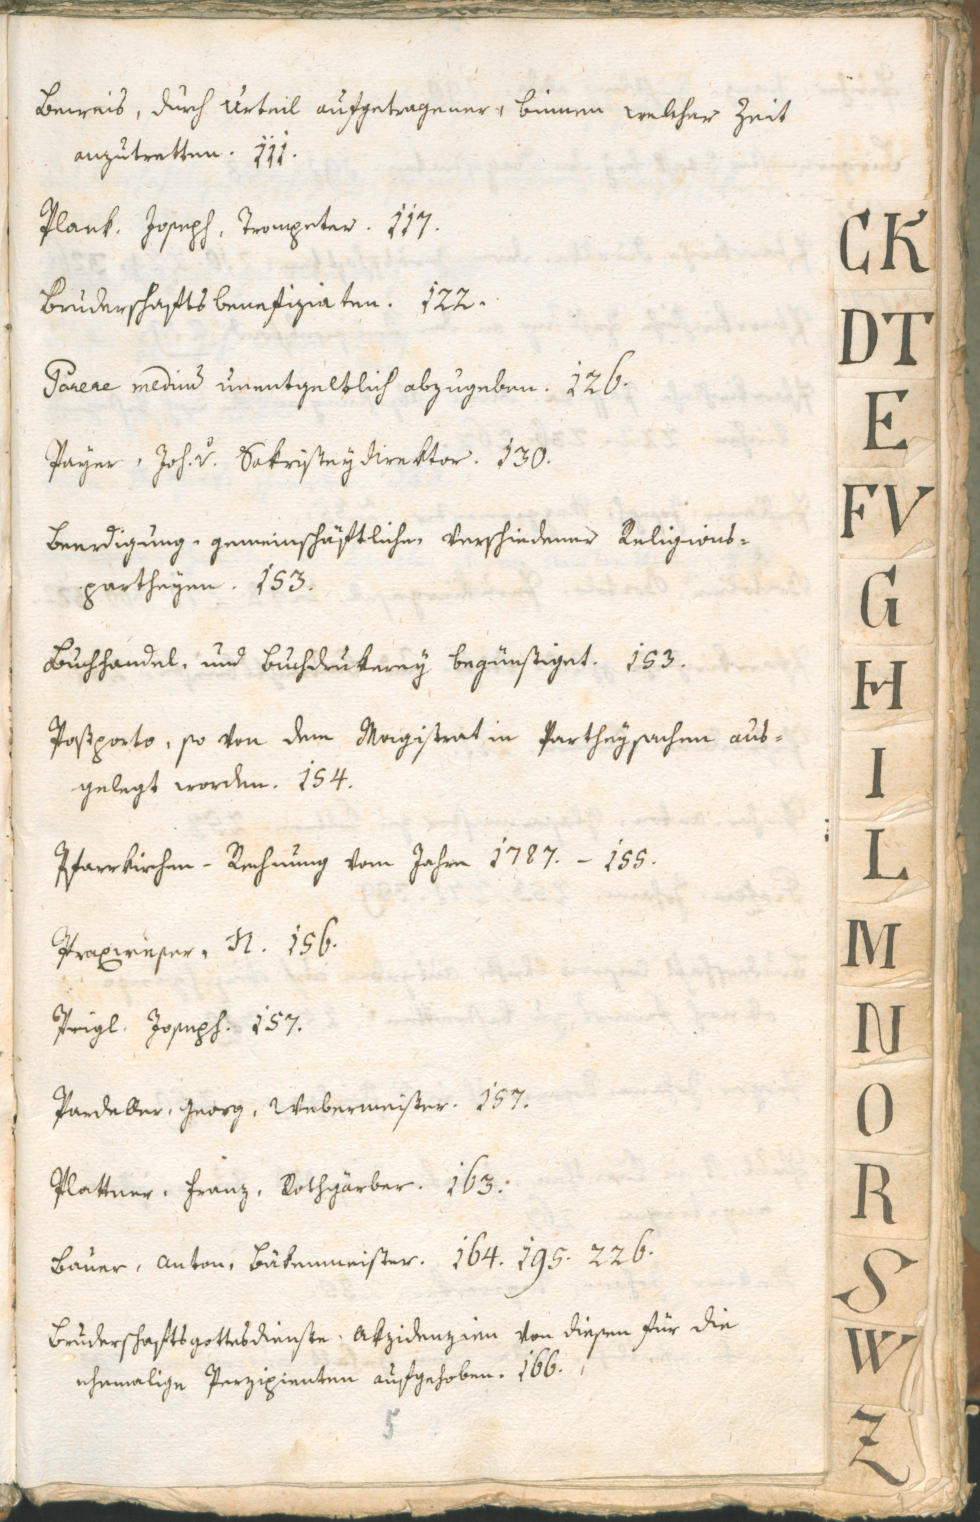 Beweis, durch Urteil aufgetragener, binnen welcher Zeit
anzutretten. 111.
Plank, Joseph, Trompeter. 117.
Bruderschaftsbenefiziaten. 122.
Parere medicum unentgeltlich abzugeben. 126.
Payer, Joh. v. Sakristeydirektor. 130.
Beerdigung, gemeinschäftliche, verschiedener Religions=
partheyen. 153.
Buchhandel, und Buchdrukerey begünstiget. 153.
Postporto, so von dem Magistrat in Partheysachen aus=
gelegt worden. 154.
Pfarrkirchen-Rechnung vom Jahre 1787. - 155.
Praxwieser, N. 156.
Prigl. Joseph. 157.
Pardeller, Georg, Webermeister. 157.
Plattner, Franz, Rothgärber. 163.
Bauer, Anton, Bäkenmeister. 164. 195. 226.
Bruderschaftsgottesdienste, Akzidenzien von diesen für die
ehemalige Perzipienten aufgehoben. 166.
5
CK
DT
E
FV
G
H
I
L
M
N
O
R
S
W
Z